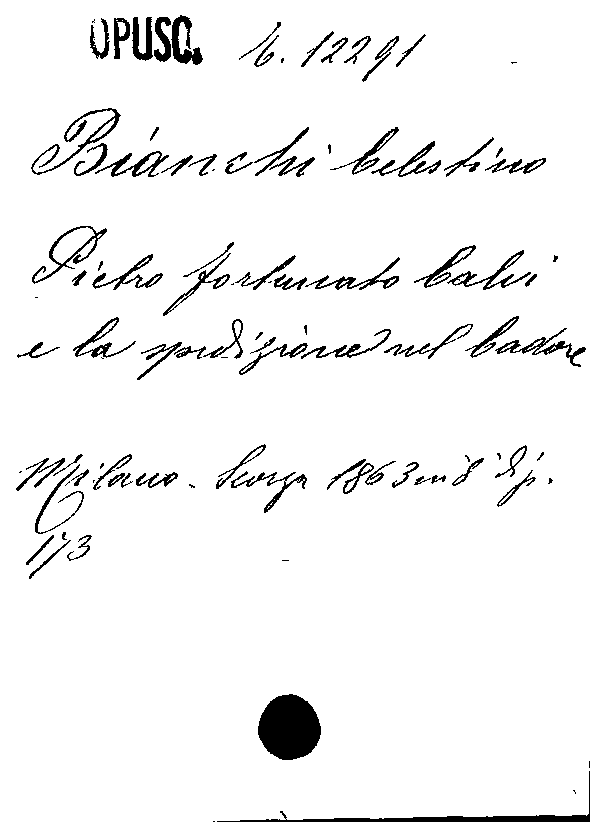 OPUSC. 6. 12291
Bianchi Celestino
Pietro fortunato Calvi
e la spedizione nel Cadore
Milano - Scorza 1863 in 8° di p.
173